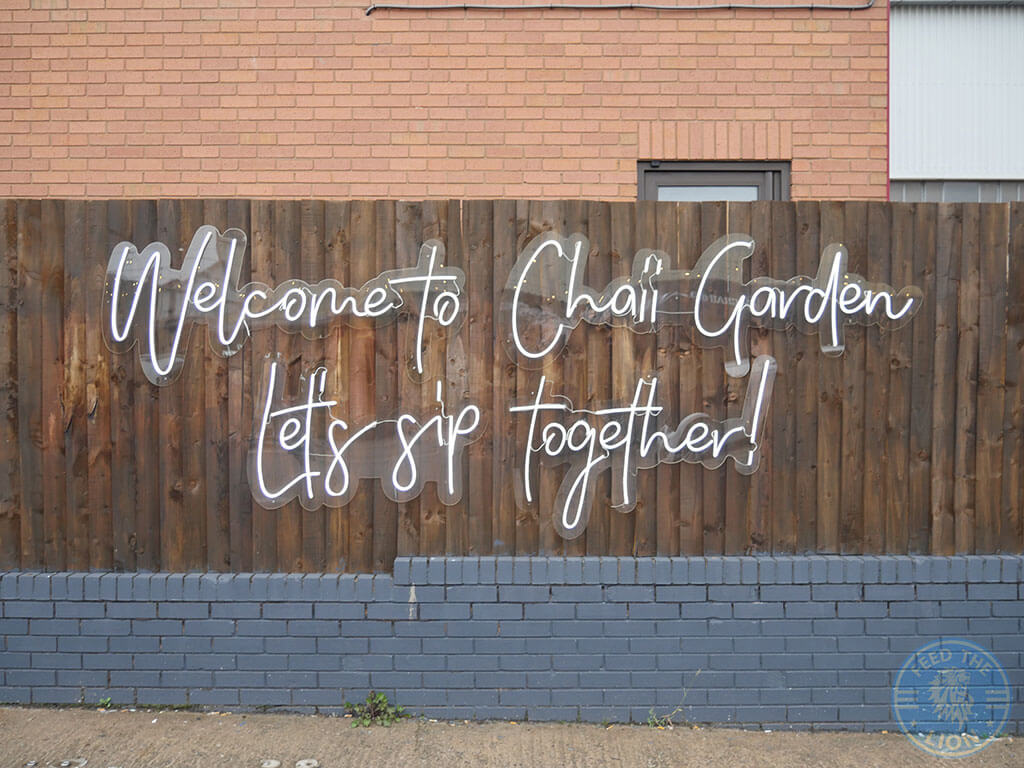 Welcome to Chaii Garden
Let's sip together!
FEED THE
LION